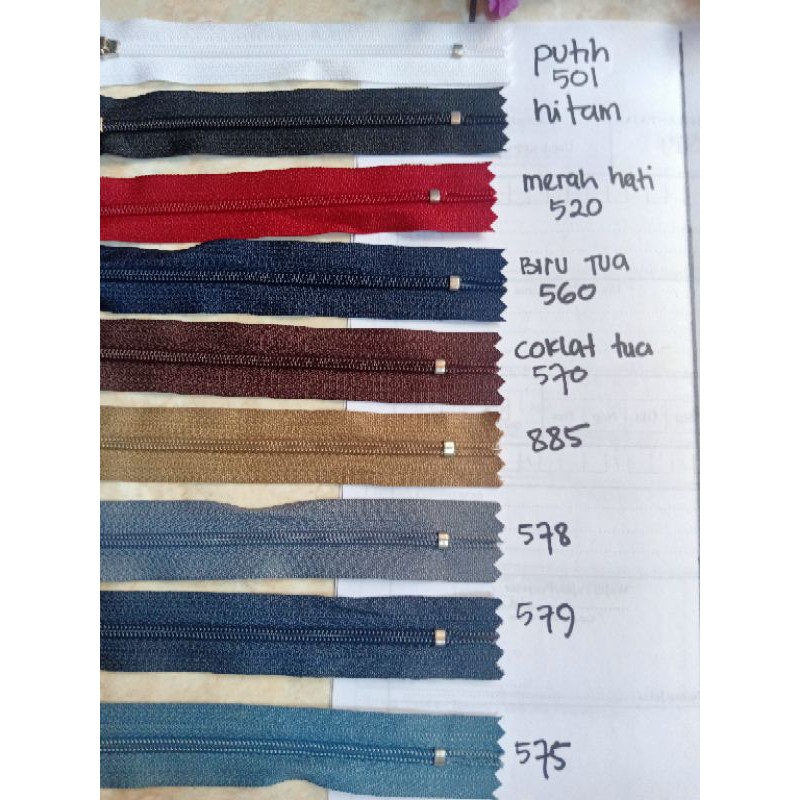 putih
501
hitam
merah hati
520
BIRU TUA
560
coklat tua
570
885
578
579
575